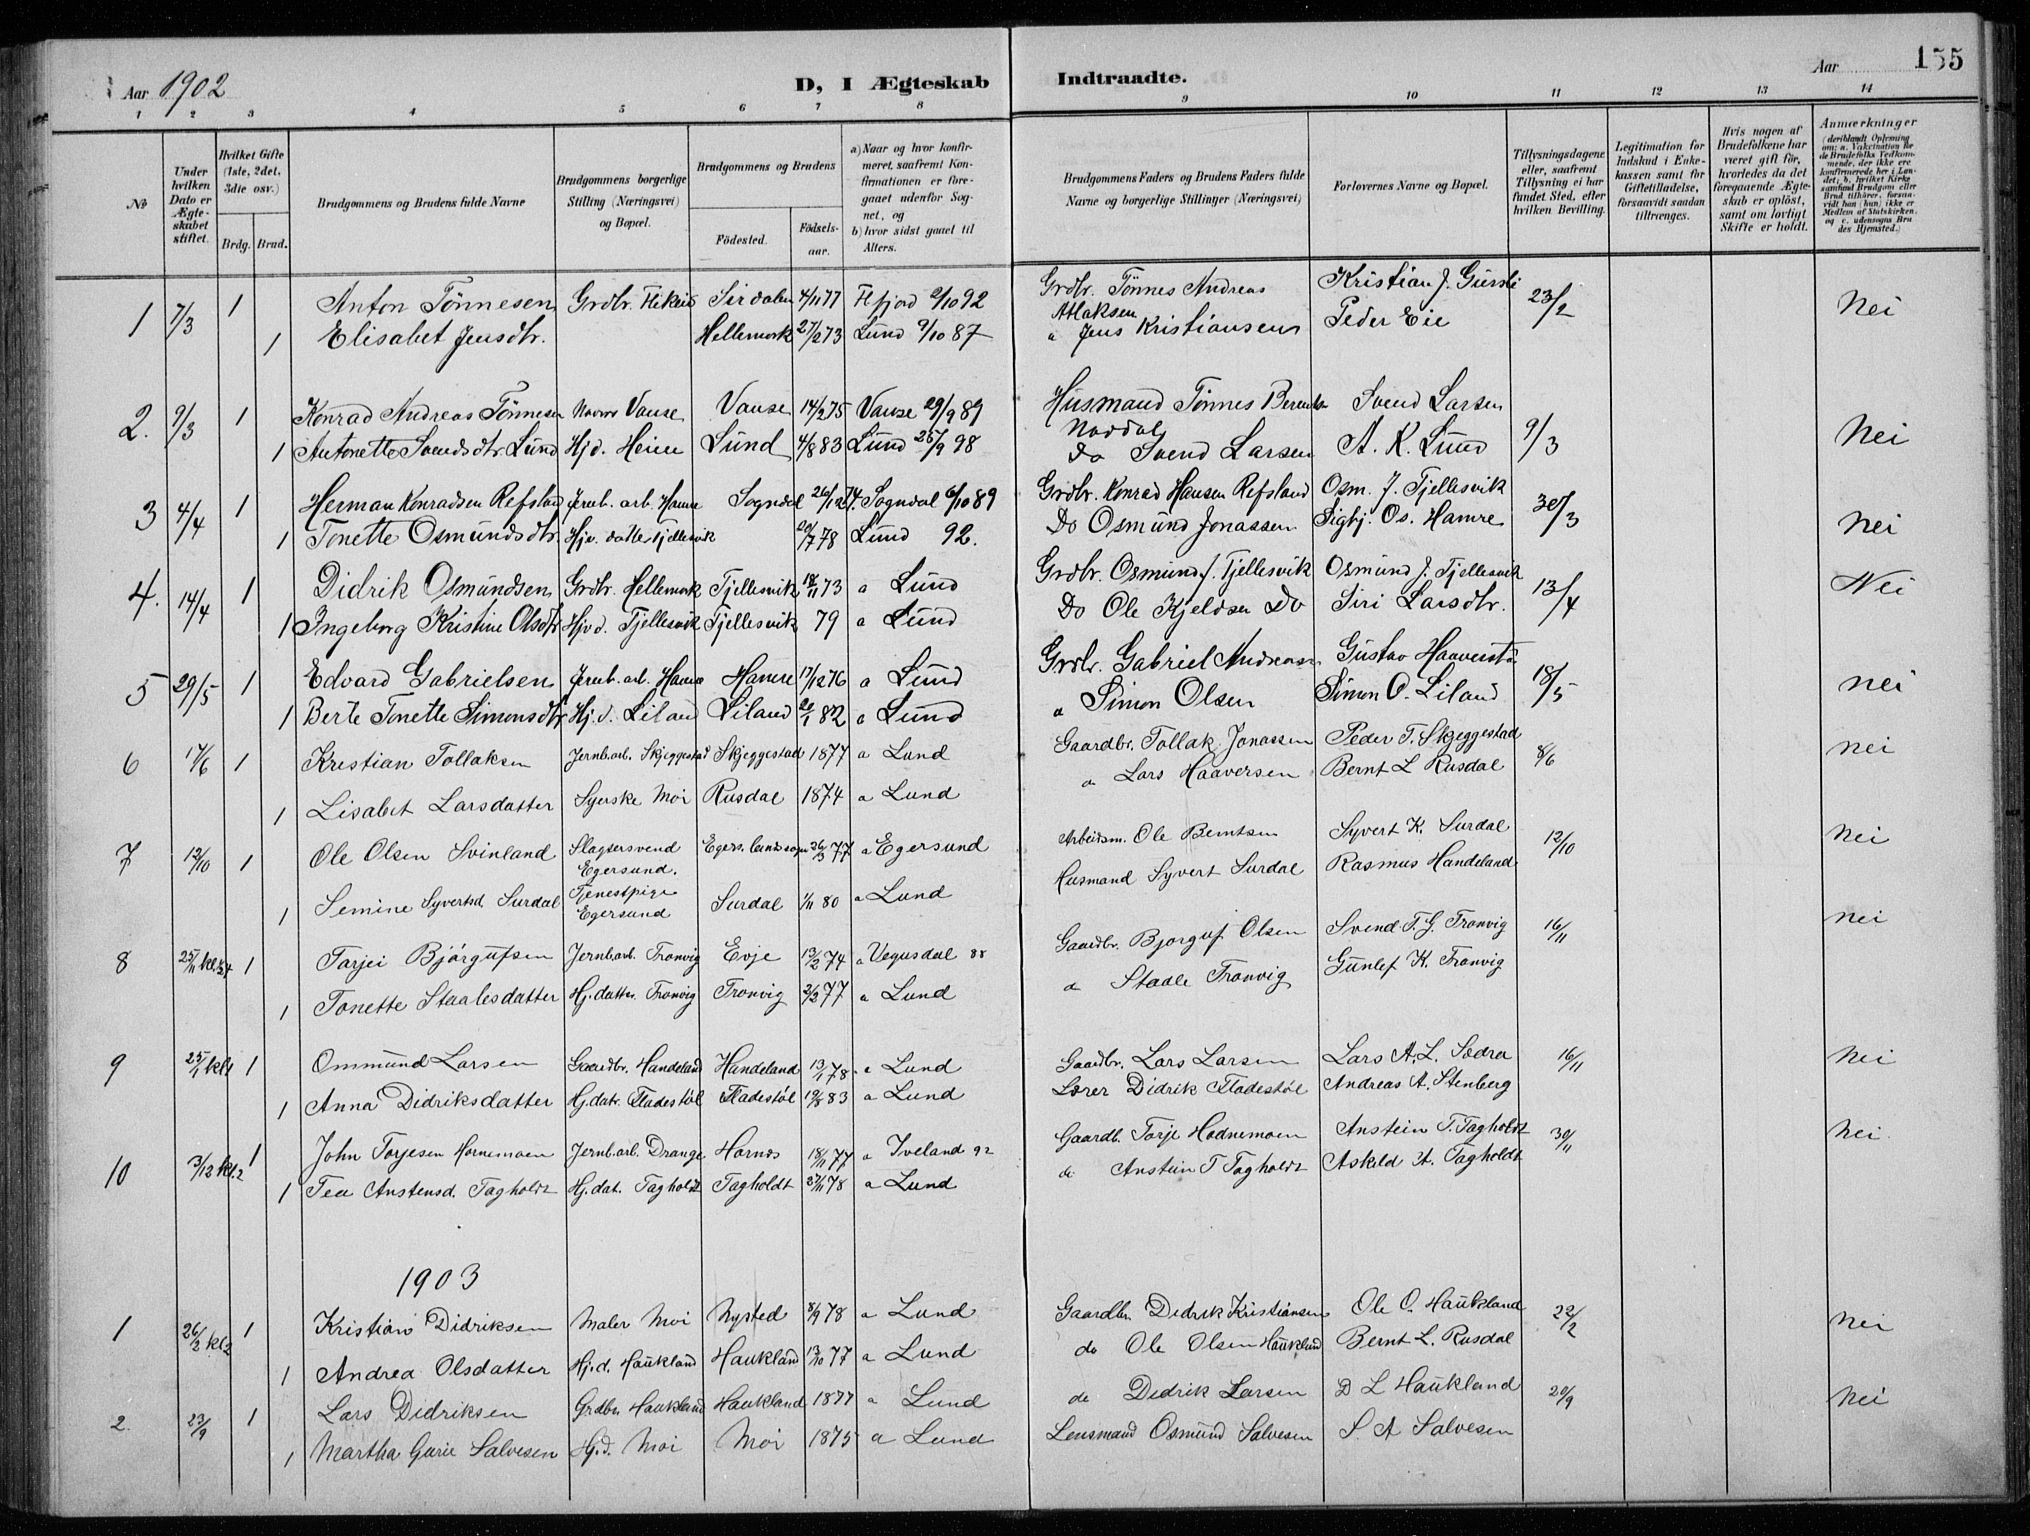 Aar 1902
D, I Ægteskab Indtraadte.
Aar 155
1 2 3 4 5 6 7 8 9 10 11 12 13 14
No
Under hvilken Dato er Ægteskabet stiftet.
Hvilket Gifte (1ste, 2det, 3die osv.)
Brdg. Brud.
Brudgommens og Brudens fulde Navne
Brudgommens borgerlige Stilling (Næringsvei) og Bopæl.
Brudgommens og Brudens
Födested. Födselsaar.
a) Naar og hvor konfirmeret, saafremt Konfirmationen er foregaaet udenfor Sognet, og
b) hvor sidst gaaet til Alters.
Brudgommens Faders og Brudens Faders fulde Navne og borgerlige Stillinger (Næringsvei)
Forlovernes Navne og Bopæl.
Tillysningsdagene eller, saafremt Tillysning ei har fundet Sted, efter hvilken Bevilling.
Legitimation for Indskud i Enkekassen samt for Giftetilladelse, forsaavidt saadan tiltrænges.
Hvis nogen af Brudefolkene har været gift för, hvorledes da det foregaaende Ægteskab er oplöst, samt om lovligt Skifte er holdt.
Anmærkninger (deriblandt Oplysning om: a. Vakcination for de Brudefolks Vedkommende, der ikke ere konfirmerede her i Landet; b. hvilket Kirkesamfund Brudgom eller Brud tilhörer, forsaavidt han (hun) ikke er Medlem af Statskirken, og c. udensogns Brudes Hjemsted.)
1 7/3 1 Anton Tönnesen Grdbr. Sirdalen 4/11 77 Hfjord 92 Grdbr. Tönnes Andreas Kristian J. 23/2 Nei
Atlaksen
1 Elisabet Jensdtr. Hellemork 27/2 73 Lund 9/10 87 a Jens Kristiansen Peder Eie
2. 9/3 1 Konrad Andreas Tönnesen Vanse Vanse 14/2 75 Vanse 29/9 89 Husmand Tönnes Svend Larsen 9/3 Nei
1 Antonette Svendsdtr. Lund Hjd. Heien Lund 4/8 83 Lund 25/9 98 Do Svend Larsen A. K. Lund
3 4/4 1 Herman Konradsen Refsland Jernb. arb. Hamre Sogndal Sogndal 6/10 89 Grdbr. Konrad Hansen Refsland Osm. J. Tjellesvik 30/3 Nei
1 Tonette Osmundsdtr. Hjv. datter Tjellesvik 20/7 78 Lund 92. Do Osmund Jonassen Sigbj. Os. Hamre
4. 14/4 1 Didrik Osmundsen Grdbr. Hellemork Tjellesvik 18/11 73 a Lund Grdbr. Osmund J. Tjellesvik Osmund J. Tjellesvik 13/4 Nei
1 Ingeborg Kristine Olsdtr Hjvd. Tjellesvik Tjellesvik 79 a Lund Do Ole Kjeldsen Do Siri Larsdtr.
5 29/5 1 Edvard Gabrielsen Jernb. arb. Hamre Hamre 17/12 76 a Lund Grdbr. Gabriel Andreasn Gustav 18/5 nei
1 Berte Tonette Simonsdtr Hj. d. Liland Liland 20/1 82 a Lund a Simon Olsen Simon O. Liland
6 17/6 1 Kristian Tollaksen Jernb. arb. Skjeggestad Skjeggestad 1877 a Lund Gaardbr. Tollak Jonassen Peder T. Skjeggestad 8/6 nei
1 Lisabet Larsdatter Syerske Moi Rusdal 1874 a Lund a Lars Haaversen Bernt L Rusdal
7 12/10 1 Ole Olsen Svinland Slagtersvend Egersund. Egers. landsogn 26/3 77 a Egersund Arbeidsm. Ole Berntsen Syvert K. Surdal 12/10 nei
1 Semine Syvertsd Surdal Tjenestpige Egersund Surdal 1/11 80 a Lund Husmand Syvert Surdal Rasmus Handeland
8 25/11 1 Tarjei Björgufsen Jernb. arb. Tronvig Evje 13/2 74 a Vegusdal 88 Gaardbr. Bjorguf Olsen Svend T. G. Tronvig 16/11 nei
1 Tonette Staalesdatter Hj. datter. Tronvig Tronvig 2/2 77 a Lund a Staale Tronvig Gunlef K. Tronvig
9 1 Ommund Larsen Gaardbr. Handeland Handeland 13/1 78 a Lund Gaardbr. Lars Larsen Lars A. L. Sædra 16/11 nei
1 Anna Didriksdatter Hj. datr. Fladestöl Fladestöl 19/8 83 a Lund Lærer Didrik Fladestöl Andreas A. Stenberg
10 3/12 kl. 2 1 John Torjesen Hornemoen Jernb. arb. Drange Hornes 18/11 77 a Iveland 92 Gaardb. Torje Hodnemoen Anstein T. Tagholdt 30/11 nei
1 Tea Anstensd. Tagholdt Hj. dat. Tagholdt Tagholdt 27/11 78 a Lund do Anstein T Tagholdt Askild A. Tagholdt
1903
1 26/2 kl 2 1 Kristian Didriksen Maler Moi Nysted 8/9 78 a Lund Gaardbr Didrik Kristiansen Ole O. Haukland 22/2 nei
1 Andrea Olsdatter Hj. d. Haukland Haukland 13/10 77 a Lund do Ole Olsen Haukland Bernt L. Rusdal
2. 23/9 1 Lars Didriksen Grdbr. Haukland Haukland 1877 a Lund do Didrik Larsen D L Haukland 20/9 nei
1 Martha Gurie Salvesen Hj. d. Moi Moi 1875 a Lund Lensmand Osmund Salvesen S. A Salvesen